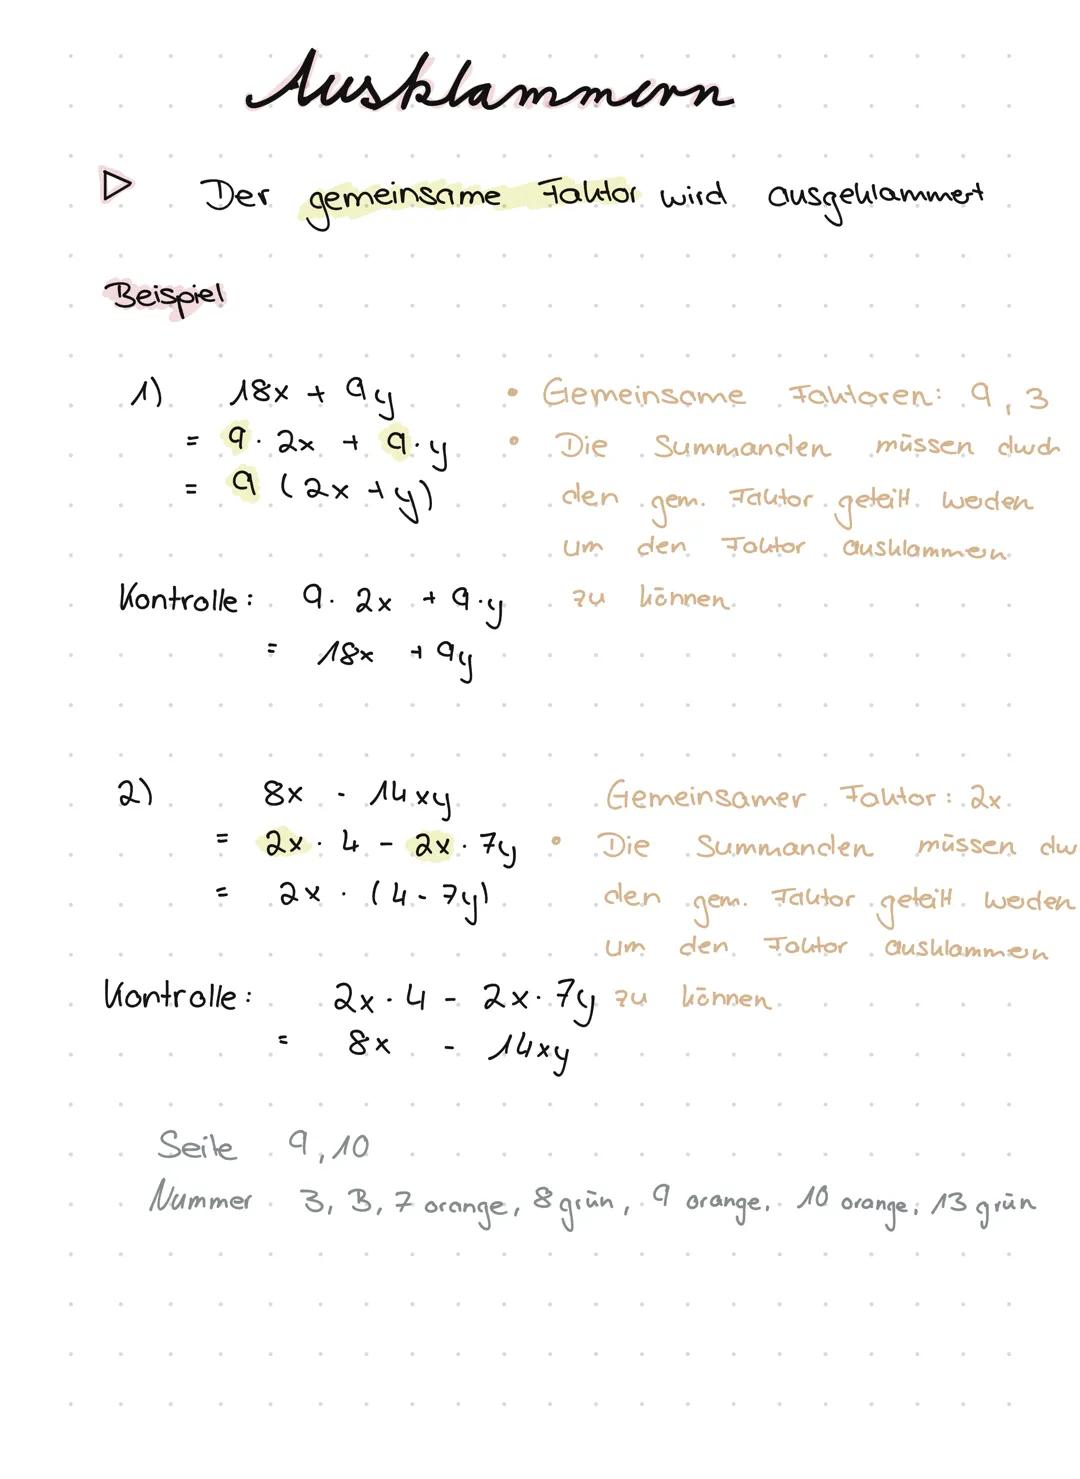 Ausklammern
▷ Der gemeinsame Faktor wird ausgeklammert
Beispiel
1) 18x + 9y
= 9 · 2x + 9 · y
= 9 (2x + y)
• Gemeinsame Faktoren: 9, 3
• Die Summanden müssen durch
den gem. Faktor geteilt werden
um den Faktor ausklammern
zu können.
Kontrolle: 9 · 2x + 9 · y
= 18x + 9y
2) 8x - 14xy
= 2x · 4 - 2x · 7y
= 2x · (4 - 7y)
Gemeinsamer Faktor: 2x
• Die Summanden müssen du
den gem. Faktor geteilt werden
um den Faktor ausklammern
zu können.
Kontrolle: 2x · 4 - 2x · 7y
= 8x - 14xy
Seite 9, 10
Nummer 3, B, 7 orange, 8 grün, 9 orange, 10 orange, 13 grün